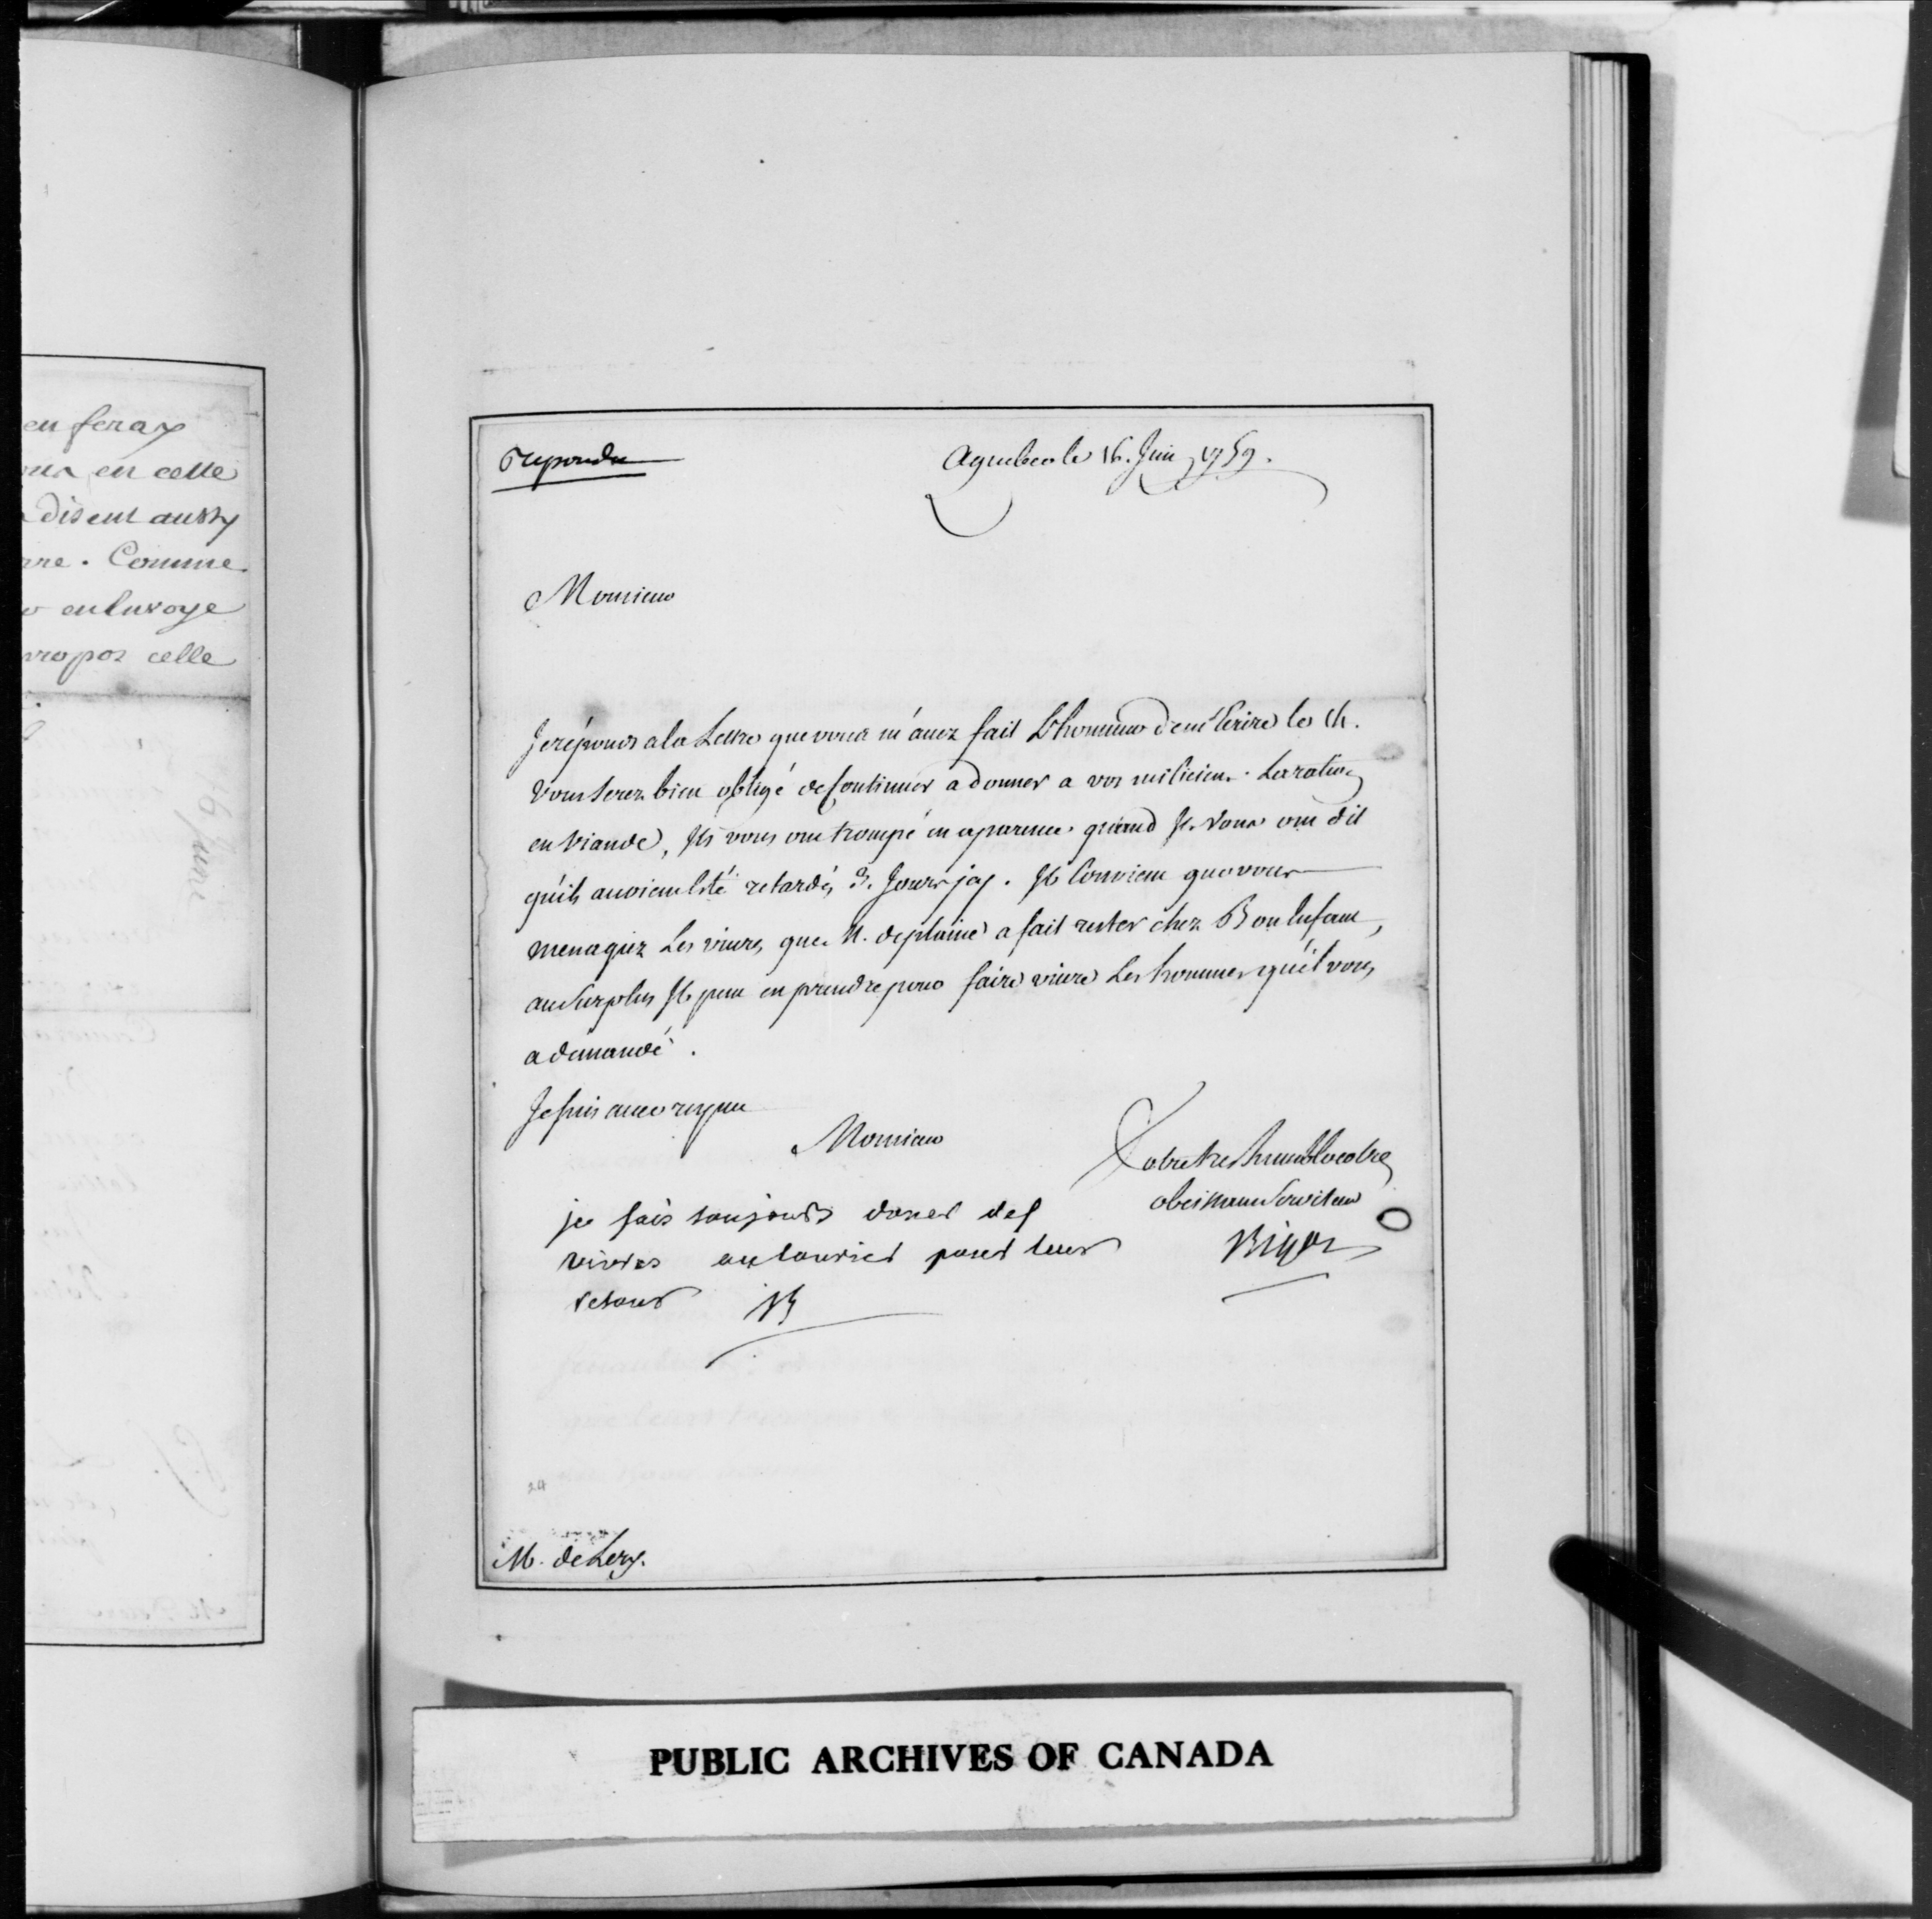 en feray
en cette
disent aussy
Comme
envoye
propos celle
repondu
a quebec le 16. Juin 1759.
Monsieur
Je réponds a la Lettre que vous m'auez fait L'honneur de m'Ecrire le 14.
Vous serez bien obligé de Continuer a donner a vos miliciens. Les rations
en viande, Ils vous ont trompé en aparence quand Ils vous ont dit
qu'ils auoient Eté retardés 3. Jours jcy. Il Convient que vous
menagiez Les viures que M. deplaine a fait rester chez Bon Enfant,
au Surplus Il peut en prendre pour faire viure Les hommes qu'il vous
a demandé.
Je suis auec respect
Monsieur
Votre tres humble et tres
obeissant Serviteur
Bigot
je fais toujours doner des
vivres au courier pour leur
retour B
24
M. de Lery.
PUBLIC ARCHIVES OF CANADA